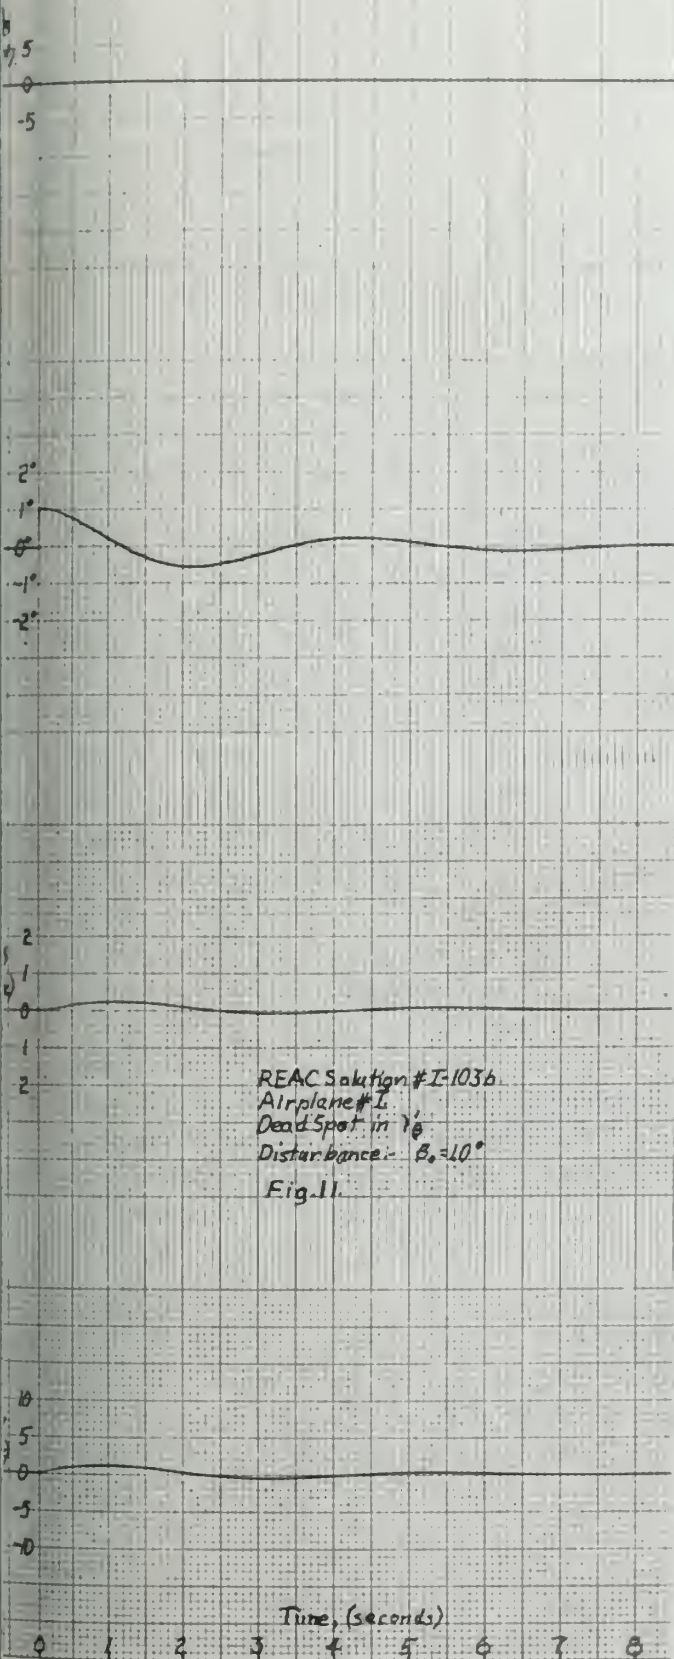 5
0
-5
2°
1°
0°
-1°
-2°
2
1
0
1
2
REAC Solution #I-103b
Airplane #I
Dead Spot in
Disturbance:- β₀=1.0°
Fig.11.
10
5
0
-5
-10
Time, (seconds)
0 1 2 3 4 5 6 7 8